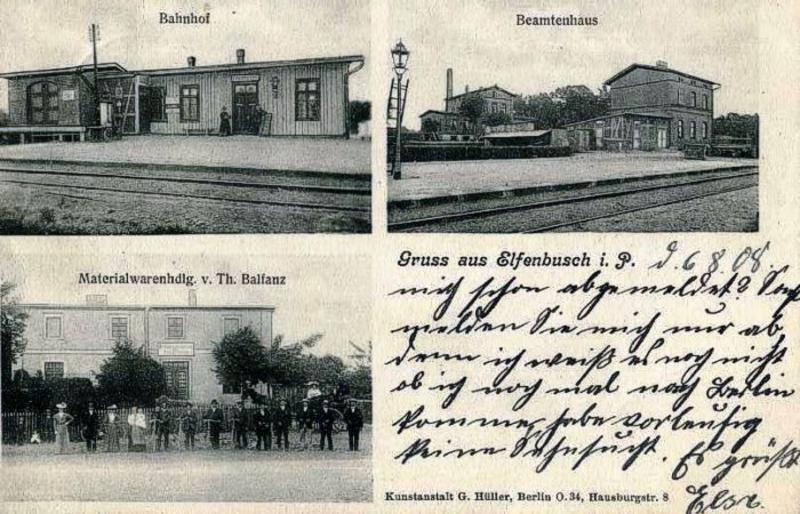 Bahnhof
Beamtenhaus
Materialwarenhdlg. v. Th. Balfanz
Gruss aus Elfenbusch i. P. d. 6.8.08.
mich schon abgemeldet?
melden Sie mich nur ab
denn ich weiß es noch nicht
ob ich noch mal nach Berlin
komme, habe vorleufig
keine Sehnsucht. Es grüßt
Else.
Kunstanstalt G. Hüller, Berlin O. 34, Hausburgstr. 8